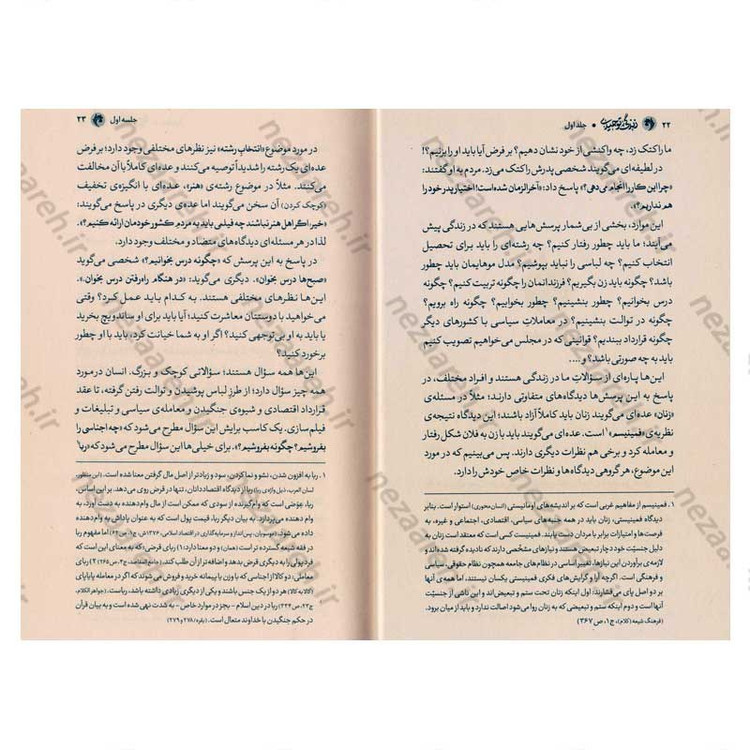 ۲۲ زندگی توحیدی • جلد اول
ما را کتک زد، چه واکنشی از خود نشان دهیم؟ بر فرض آیا باید او را بزنیم؟!
در لطیفه‌ای می‌گویند شخصی پدرش را کتک می‌زد. مردم به او گفتند:
«چرا این کار را انجام می‌دهی؟» پاسخ داد: «آخرالزمان شده است! اختیار پدر خود را
هم نداریم؟».
این موارد، بخشی از بی‌شمار پرسش‌هایی هستند که در زندگی پیش
می‌آیند؛ ما باید چطور رفتار کنیم؟ چه رشته‌ای را باید برای تحصیل
انتخاب کنیم؟ چه لباسی را نباید بپوشیم؟ مدل موهایمان باید چطور
باشد؟ چگونه باید زن بگیریم؟ فرزندانمان را چگونه تربیت کنیم؟ چگونه
درس بخوانیم؟ چطور بخوابیم؟ چطور بنشینیم؟ چگونه راه برویم؟
چگونه در توالت بنشینیم؟ در معاملات سیاسی با کشورهای دیگر
چگونه قرارداد ببندیم؟ قوانینی که در مجلس می‌خواهیم تصویب کنیم
باید به چه صورتی باشد؟ و....
این‌ها پاره‌ای از سؤالات ما در زندگی هستند و افراد مختلف، در
پاسخ به این پرسش‌ها دیدگاه‌های متفاوتی دارند؛ مثلاً در مسئله‌ی
«زنان» عده‌ای می‌گویند زنان باید کاملاً آزاد باشند؛ این دیدگاه نتیجه‌ی
نظریه‌ی «فمینیسم»۱ است. عده‌ای می‌گویند باید با زن به فلان شکل رفتار
و معامله کرد و برخی هم نظرات دیگری دارند. پس می‌بینیم که در مورد
این موضوع، هر گروهی دیدگاه‌ها و نظرات خاص خودش را دارد.
۱. فمینیسم از مفاهیم غربی است که بر اندیشه‌های اومانیستی (انسان‌محوری) استوار است. بنابر
دیدگاه فمینیستی، زنان باید در همه جنبه‌های سیاسی، اقتصادی، اجتماعی و غیره، به
فرصت‌ها و امتیازات برابر با مردان دست یابند. فمینیست کسی است که معتقد است زنان به
دلیل جنسیّت خود دچار تبعیض هستند و نیازهای مشخصی دارند که نادیده گرفته شده‌اند و
لازمه‌ی برآوردن این نیازها، تغییر اساسی در نظام‌های جامعه همچون نظام حقوقی، سیاسی
و فرهنگی است. اگرچه آرا و گرایش‌های فکری فمینیستی یکسان نیستند، اما همه‌ی آنها
بر دو اصل پای می‌فشارند، اول اینکه زنان تحت ستم و تبعیض‌اند و این ناشی از جنسیّت
آنها است و دوم اینکه ستم و تبعیضی که به زنان روا می‌شود اصالت ندارد و باید از میان برود.
(فرهنگ شیعه (کلام)، ج۱، ص ۳۶۷)
جلسه اول ۲۳
در مورد موضوع «انتخاب رشته» نیز نظرهای مختلفی وجود دارد؛ بر فرض
عده‌ای یک رشته را شدیداً توصیه می‌کنند و عده‌ای کاملاً با آن مخالفت
می‌کنند. مثلاً در موضوع رشته‌ی «هنر» عده‌ای با انگیزه‌ی تخفیف
(کوچک کردن) آن سخن می‌گویند اما عده‌ی دیگری در پاسخ می‌گویند:
«خیر! اگر اهل هنر نباشند چه فیلمی باید به مردم کشور خودمان ارائه کنیم؟».
لذا در هر مسئله‌ای دیدگاه‌های متضاد و مختلف وجود دارد.
در پاسخ به این پرسش که «چگونه درس بخوانیم؟» شخصی می‌گوید
«صبح‌ها درس بخوان». دیگری می‌گوید: «در هنگام راه‌رفتن درس بخوان».
این‌ها نظرهای مختلفی هستند. به کدام باید عمل کرد؟ وقتی
می‌خواهید با دوستتان معاشرت کنید؛ آیا باید برای او ساندویچ بخرید
یا باید به او بی‌توجهی کنید؟ اگر او به شما خیانت کرد، باید با او چطور
برخورد کنید؟
این‌ها همه سؤال هستند؛ سؤالاتی کوچک و بزرگ. انسان در مورد
همه چیز سؤال دارد؛ از طرز لباس پوشیدن و توالت رفتن گرفته، تا عقد
قرارداد اقتصادی و شیوه‌ی جنگیدن و معامله‌ی سیاسی و تبلیغات و
فیلم‌سازی. یک کاسب برایش این سؤال مطرح می‌شود که «چه اجناسی را
بفروشیم؟ چگونه بفروشیم؟». برای خیلی‌ها این سؤال مطرح می‌شود که «ربا۱
۱. ربا به افزون شدن، نشو و نما کردن، سود و زیادتر از اصل مال گرفتن معنا شده است. (ابن منظور،
لسان العرب، ذیل واژه‌ی ربا) ربا از دیدگاه اقتصاددانان، تنها در قرض روی می‌دهد. بر این اساس،
ربا، عِوَضی است که وام‌گیرنده از سودی که ممکن است از مال وام‌ده به دست آورد، به
وام دهنده می‌پردازد. به بیان دیگر ربا، قیمت پول است که به عنوان پاداش به وام‌دهنده
داده می‌شود. (موسویان، پس‌انداز و سرمایه‌گذاری در اقتصاد اسلامی، ۱۳۷۶ش،
در فقه شیعه گسترده‌تر است (همان) و دو معنا دارد: ۱) ربای قرضی؛ که به معنای این است که
فرد پولی را به دیگری قرض بدهد و اضافه‌تر از آن طلب کند.
معاملی؛ دو کالا از اجناسی که با وزن یا پیمانه خرید و فروش می‌کنند که اگر در معامله‌ی پایاپای
(کالا به کالا) هر دو از یک جنس باشند و یکی از دیگری زیادی داشته باشد، رباست. (جواهر الکلام،
ج۲۳، ص۳۳۴) ربا در دین اسلام - بجز در موارد خاص - به شدت نهی شده است و به بیان قرآن
در حکم جنگیدن با خداوند متعال است. (بقره/ ۲۷۸ و ۲۷۹)
nezaareh.ir